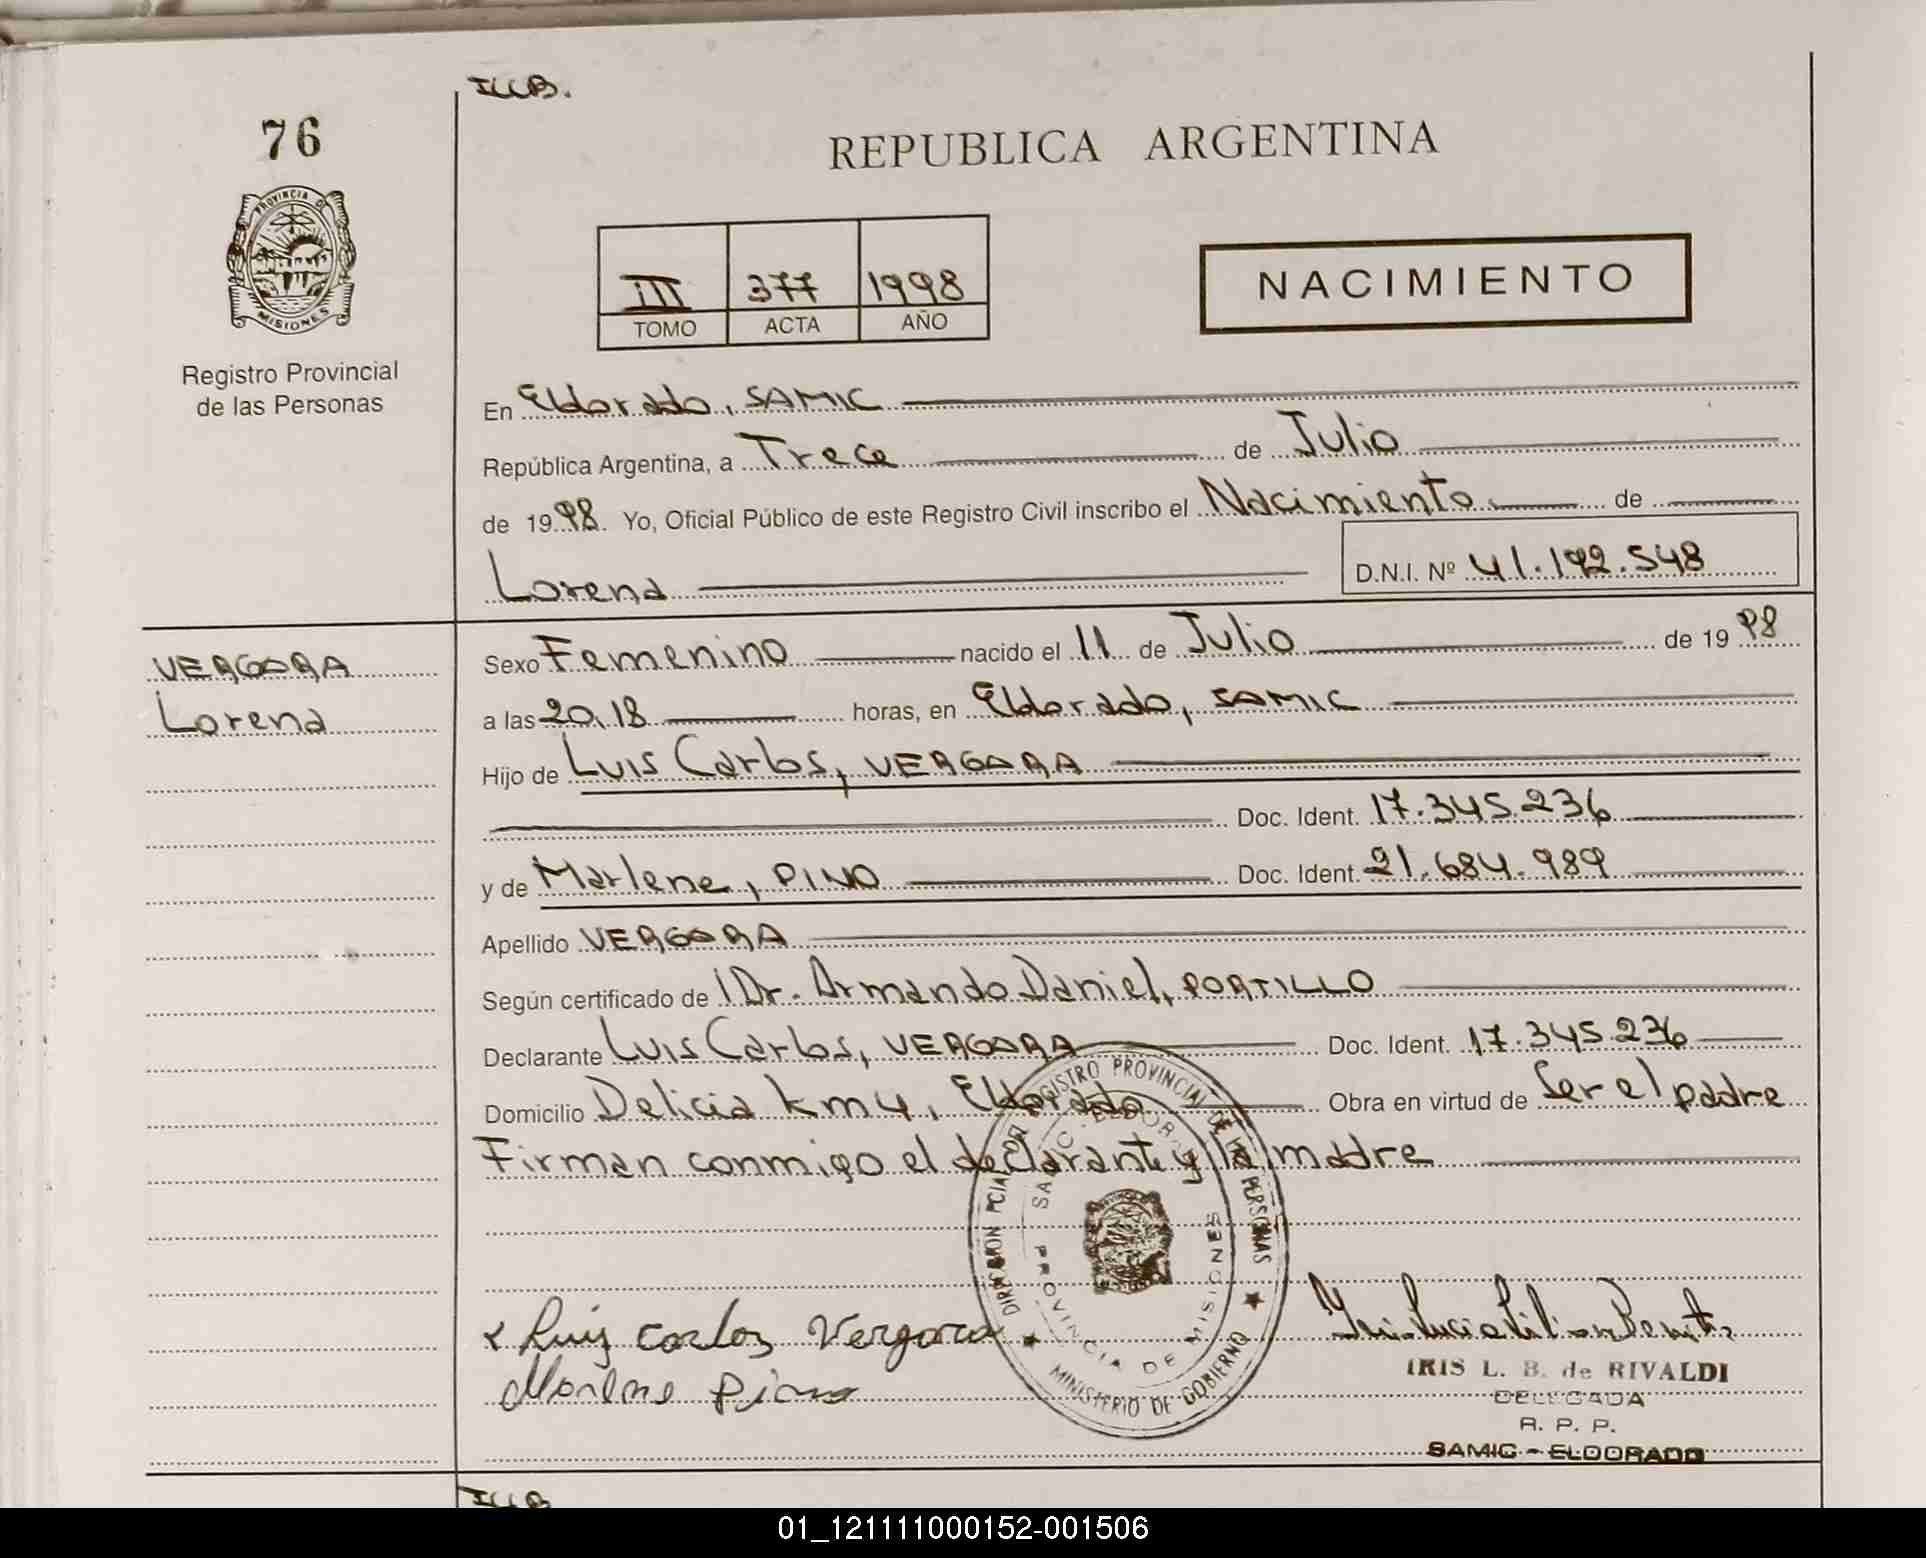 ILLB.
76
REPUBLICA ARGENTINA
PROVINCIA DE
MISIONES
III 377 1998
TOMO ACTA AÑO
NACIMIENTO
Registro Provincial
de las Personas
En Eldorado, SAMIC
República Argentina, a Trece de Julio
de 19 98. Yo, Oficial Público de este Registro Civil inscribo el Nacimiento de
Lorena D.N.I. Nº 41.192.548
VERGARA
Lorena
Sexo Femenino nacido el 11 de Julio de 19 98
a las 20,18 horas, en Eldorado, SAMIC
Hijo de Luis Carlos, VERGARA
Doc. Ident. 17.345.236
y de Marlene, PINO Doc. Ident. 21.684.989
Apellido VERGARA
Según certificado de l Dr. Armando Daniel, PORTILLO
Declarante Luis Carlos, VERGARA Doc. Ident. 17.345.236
Domicilio Delicia km 4, Eldorado Obra en virtud de Ser el padre
Firman conmigo el declarante y la madre
DIRECCION PCIA DEL REGISTRO PROVINCIAL DE LAS PERSONAS
SAMIC - ELDORADO
PROVINCIA DE MISIONES
MINISTERIO DE GOBIERNO
x Luiz Carloz Vergara
Marlene Pino
IRIS L. B. de RIVALDI
DELEGADA
R. P. P.
SAMIC - ELDORADO
ILLB
01_121111000152-001506